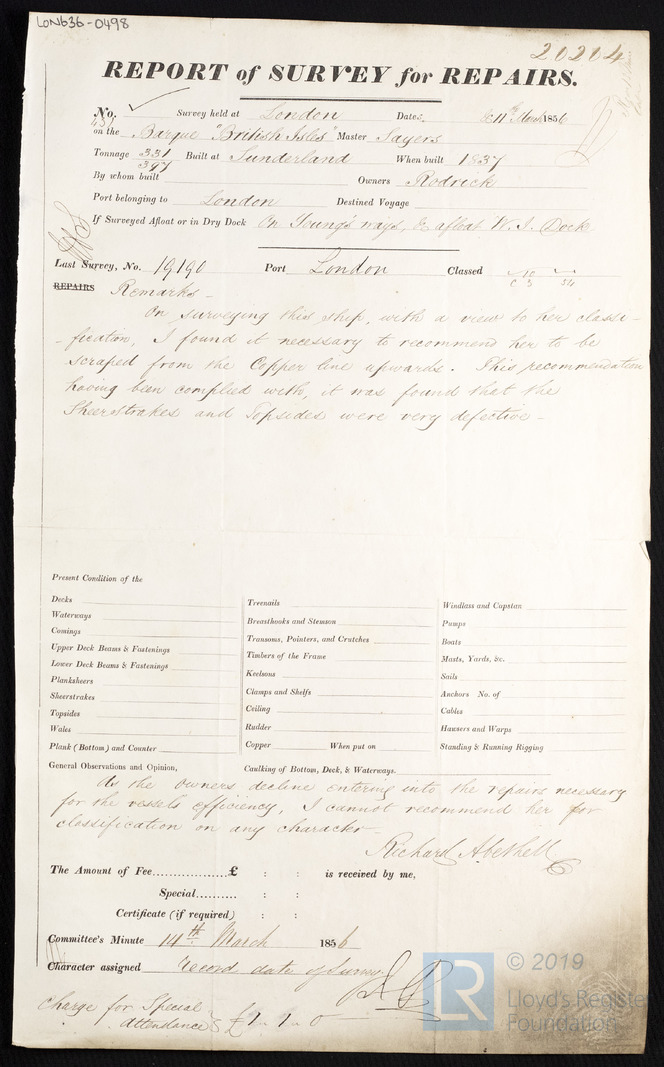 LON636-0498
20204
REPORT of SURVEY for REPAIRS.
No. Survey held at London Date, 11th March 1856
on the Barque "British Isles" Master Sayers
Tonnage 331 397 Built at Sunderland When built 1837
By whom built Owners Rodrick
Port belonging to London Destined Voyage
If Surveyed Afloat or in Dry Dock On Young's ways, & afloat W. I. Dock
Last Survey, No. 19190 Port London Classed
REPAIRS Remarks -
On surveying this ship, with a view to her classi-
-fication, I found it necessary to recommend her to be
scraped from the Copper line upwards. This recommendation
having been complied with, it was found that the
Sheerstrakes and Topsides were very defective -
Present Condition of the
Decks
Waterways
Comings
Upper Deck Beams & Fastenings
Lower Deck Beams & Fastenings
Planksheers
Sheerstrakes
Topsides
Wales
Plank (Bottom) and Counter
Treenails
Breasthooks and Stemson
Transoms, Pointers, and Crutches
Timbers of the Frame
Keelsons
Clamps and Shelfs
Ceiling
Rudder
Copper When put on
Windlass and Capstan
Pumps
Boats
Masts, Yards, &c.
Sails
Anchors No. of
Cables
Hawsers and Warps
Standing & Running Rigging
General Observations and Opinion, Caulking of Bottom, Deck, & Waterways.
As the owners decline entering into the repairs necessary
for the vessels efficiency, I cannot recommend her for
classification on any character -
Richard Abethell
The Amount of Fee................£ : : is received by me,
Special.......... : :
Certificate (if required) : :
Committee's Minute 14th March 1856
Character assigned record date of Survey
Charge for Special
attendance £1.1.0
LR © 2019
Lloyd's Register
Foundation